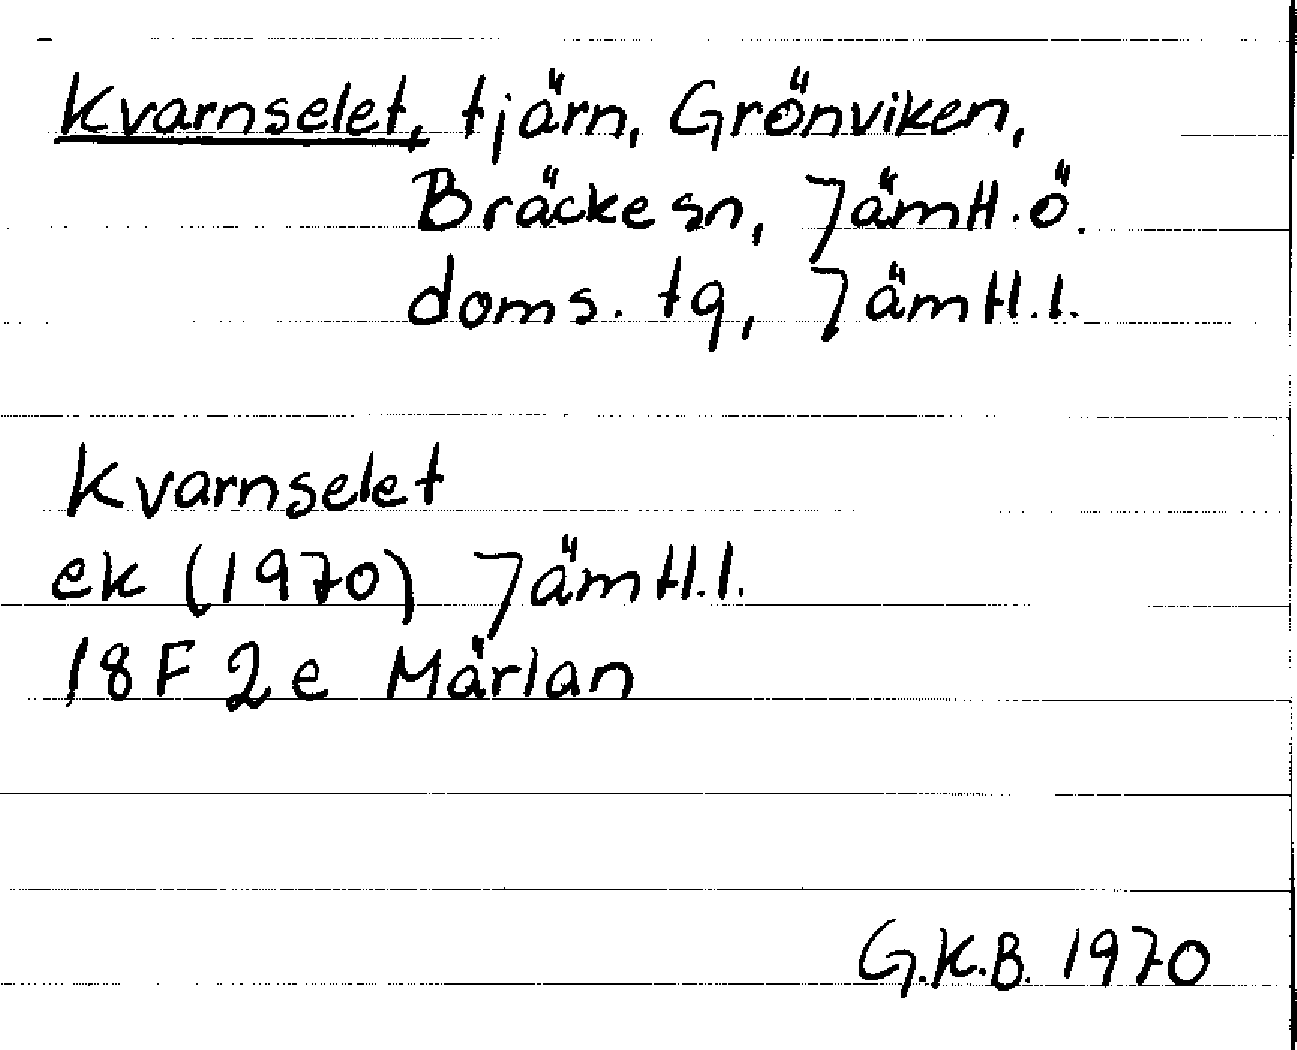 Kvarnselet, tjärn, Grönviken,
Bräcke sn, Jämtl. ö.
doms. tg, Jämtl.l.
Kvarnselet
ek (1970) Jämtl.l.
18 F 2 e Märlan
G.K.B. 1970